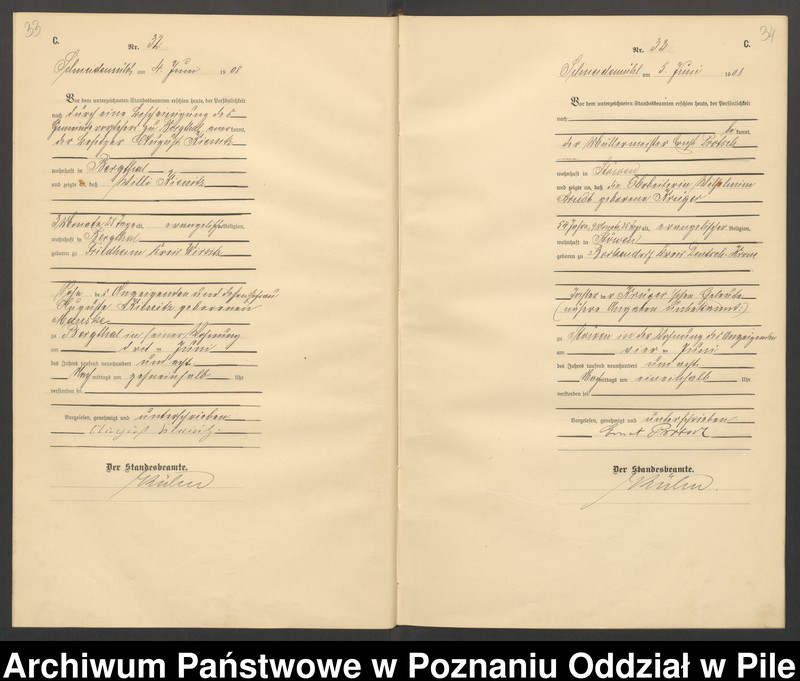 33
C.
Nr. 32
Schneidemühl, am 4. Juni 1908
Vor dem unterzeichneten Standesbeamten erschien heute, der Persönlichkeit
nach durch eine Bescheinigung des
Gemeindevorstehers zu Bergthal anerkannt,
der Besitzer August Kienitz
wohnhaft in Bergthal
und zeigte an, daß Willi Kienitz
3 Monate, 28 Tage alt, evangelischer Religion,
wohnhaft in Bergthal
geboren zu Friedheim Kreis Wirsitz
Sohn des Anzeigenden und dessen Ehefrau
Auguste Kienitz geborenen
zu Bergthal in seiner Wohnung
am drei ten Juni
des Jahres tausend neunhundert und acht
Nachmittags um zehneinhalb Uhr
verstorben sei.
Vorgelesen, genehmigt und unterschrieben
August Kienitz
Der Standesbeamte.
34
C.
Nr. 33
Schneidemühl am 5. Juni 1908
Vor dem unterzeichneten Standesbeamten erschien heute, der Persönlichkeit
nach
bekannt,
der Müllermeister Ernst
wohnhaft in Stöwen
und zeigte an, daß die Arbeiterin Wilhelmine
geborene Krüger
84 Jahre, 9 Monate, 28 Tage alt, evangelischer Religion,
wohnhaft in Stöwen
geboren zu Borkendorf Kreis Deutsch-Krone
Tochter der Krüger'schen Eheleute
(nähere Angaben unbekannt)
zu Stöwen in der Wohnung des Anzeigenden
am vier ten Juni
des Jahres tausend neunhundert und acht
Nachmittags um eineinhalb Uhr
verstorben sei.
Vorgelesen, genehmigt und unterschrieben
Ernst
Der Standesbeamte.
Archiwum Państwowe w Poznaniu Oddział w Pile